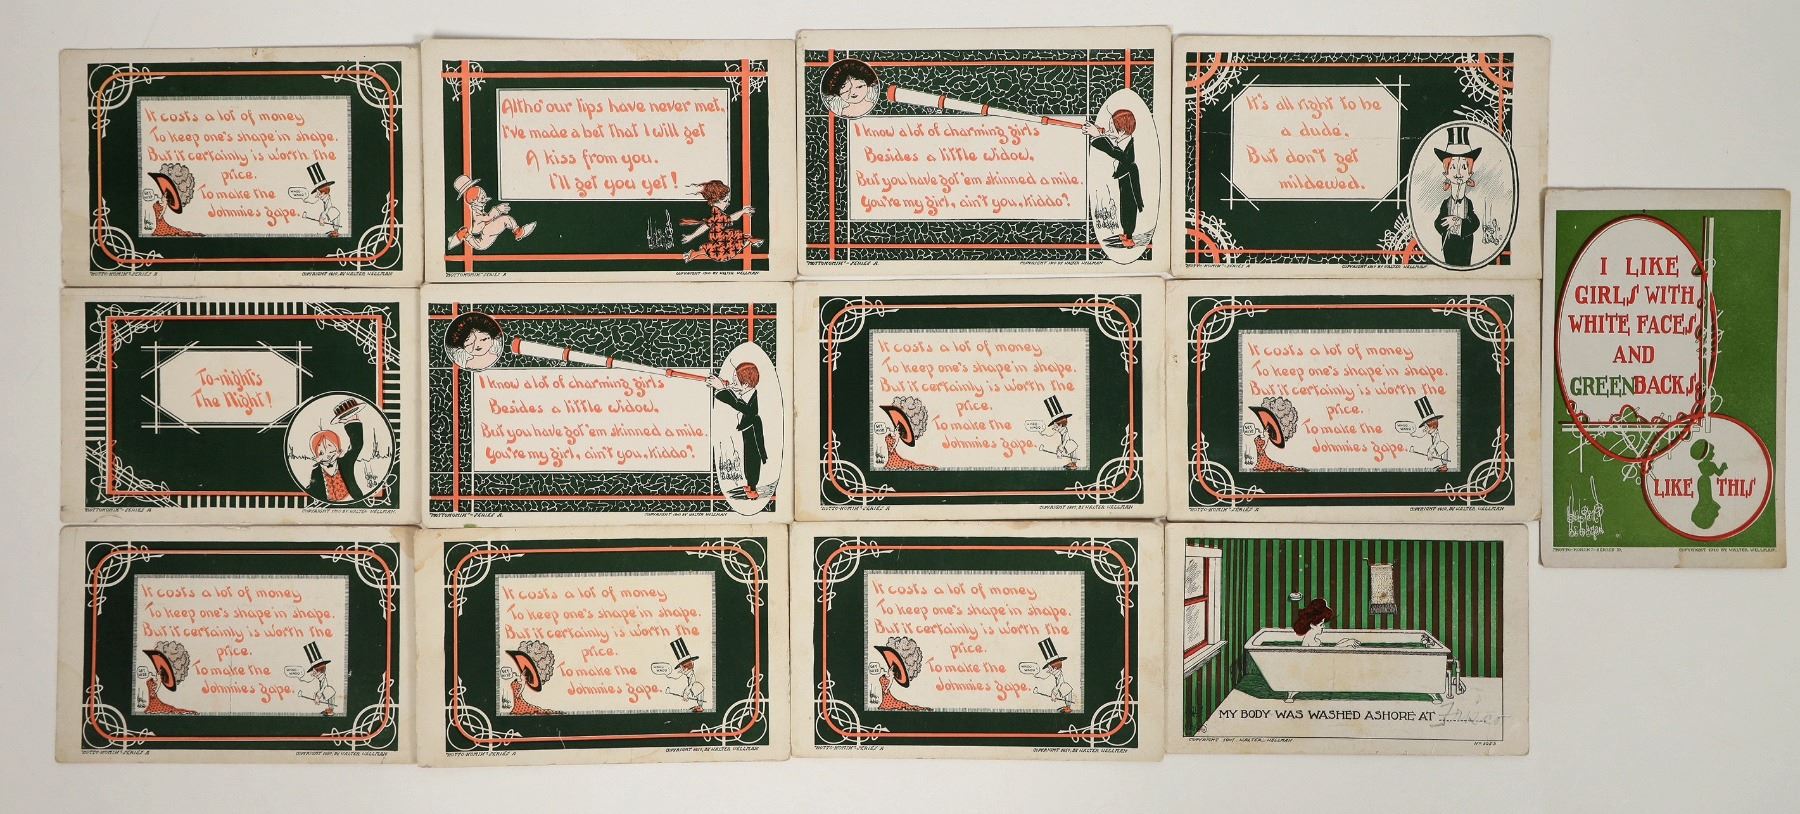 It costs a lot of money
To keep one's shape in shape.
But it certainly is worth the
price.
To make the
Johnnies gape.
"MOTTO-KOMIK"-SERIES A
COPYRIGHT 1910, BY WALTER WELLMAN
Altho' our lips have never met,
I've made a bet that I will get
A kiss from you.
I'll get you yet!
"MOTTOKOMIK" SERIES A
COPYRIGHT 1910 BY WALTER WELLMAN.
I know a lot of charming girls
Besides a little widow,
But you have got 'em skinned a mile.
You're my girl, ain't you, kiddo?
"MOTTOKOMIK"-SERIES A.
COPYRIGHT 1910 BY WALTER WELLMAN
It's all right to be
a dude,
But don't get
mildewed.
"MOTTO-KOMIK"-SERIES A
COPYRIGHT 1910 BY WALTER WELLMAN
To-night's
The Night!
"MOTTOKOMIK"-SERIES A
COPYRIGHT 1910 BY WALTER WELLMAN.
I know a lot of charming girls
Besides a little widow,
But you have got 'em skinned a mile.
You're my girl, ain't you, kiddo?
"MOTTOKOMIK"-SERIES A.
COPYRIGHT 1910 BY WALTER WELLMAN
It costs a lot of money
To keep one's shape in shape.
But it certainly is worth the
price.
To make the
Johnnies gape.
"MOTTO-KOMIK"-SERIES A
BY WALTER WELLMAN
It costs a lot of money
To keep one's shape in shape.
But it certainly is worth the
price.
To make the
Johnnies gape.
"MOTTO-KOMIK"-SERIES A
BY WALTER WELLMAN
I LIKE
GIRLS WITH
WHITE FACES
AND
GREENBACKS
LIKE THIS
"MOTTO-KOMIK"-SERIES D.
COPYRIGHT 1910 BY WALTER WELLMAN.
It costs a lot of money
To keep one's shape in shape.
But it certainly is worth the
price.
To make the
Johnnies gape.
"MOTTO-KOMIK"-SERIES A
BY WALTER WELLMAN
It costs a lot of money
To keep one's shape in shape.
But it certainly is worth the
price.
To make the
Johnnies gape.
"MOTTO-KOMIK"-SERIES A
BY WALTER WELLMAN
It costs a lot of money
To keep one's shape in shape.
But it certainly is worth the
price.
To make the
Johnnies gape.
"MOTTO-KOMIK"-SERIES A
BY WALTER WELLMAN
MY BODY WAS WASHED ASHORE AT
COPYRIGHT 1907, WALTER WELLMAN